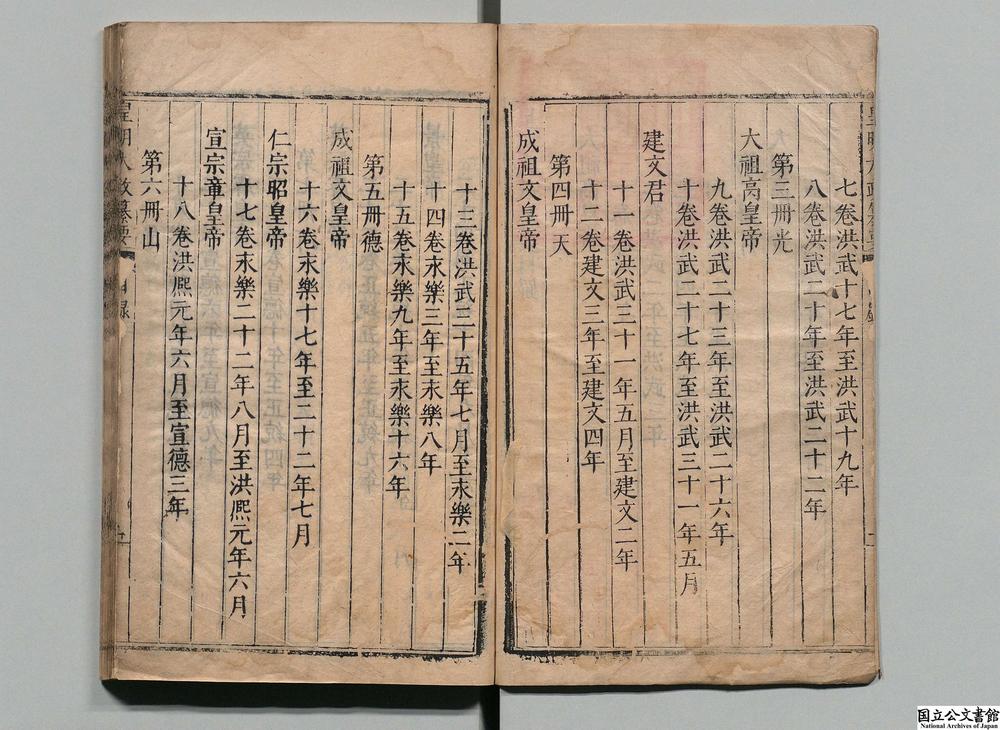 七卷洪武十七年至洪武十九年
八卷洪武二十年至洪武二十二年
第三冊光
大祖高皇帝
九卷洪武二十三年至洪武二十六年
十卷洪武二十七年至洪武三十一年五月
建文君
十一卷洪武三十一年五月至建文二年
十二卷建文三年至建文四年
第四冊天
成祖文皇帝
十三卷洪武三十五年七月至永樂二年
十四卷永樂三年至永樂八年
十五卷永樂九年至永樂十六年
第五冊德
成祖文皇帝
十六卷永樂十七年至二十二年七月
仁宗昭皇帝
十七卷永樂二十二年八月至洪熈元年六月
宣宗章皇帝
十八卷洪熈元年六月至宣德三年
第六冊山
皇明大政纂要 目録
国立公文書館
National Archives of Japan